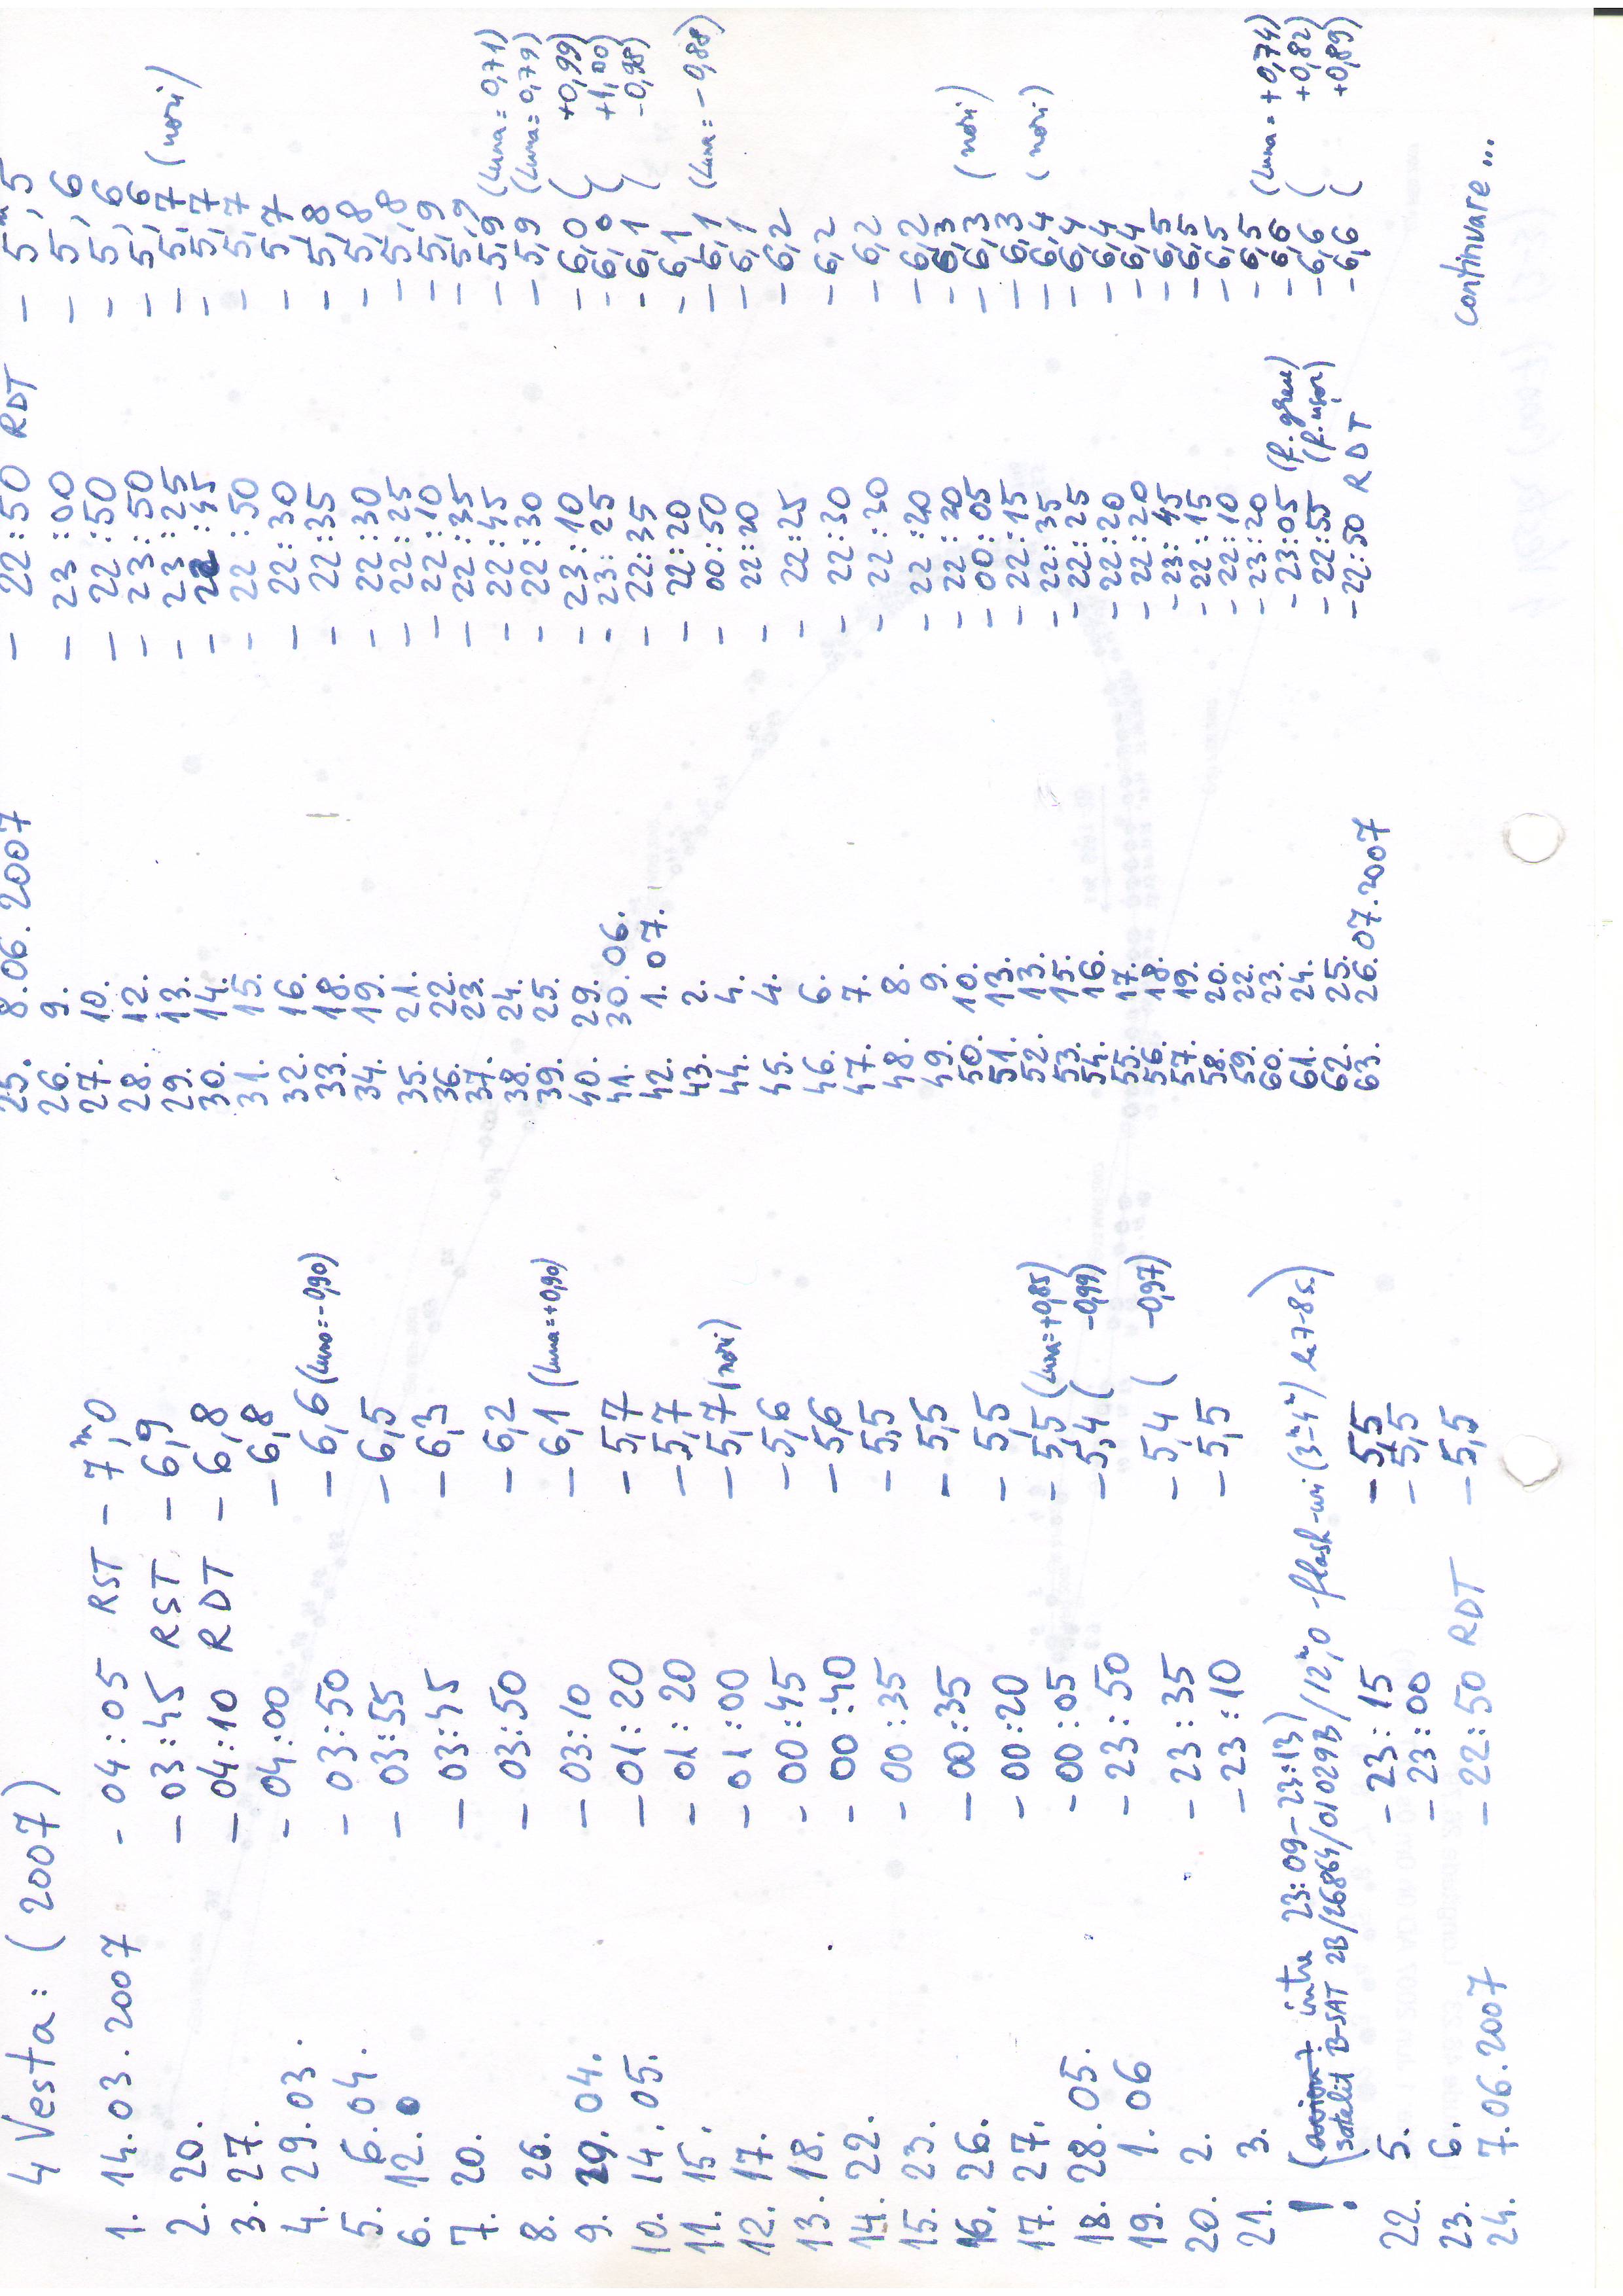 4 Vesta: (2007)
1. 14.03.2007 - 04:05 RST - 7ᵐ,0
2. 20. - 03:45 RST - 6,9
3. 27. - 04:10 RDT - 6,8
4. 29.03. - 04:00 - 6,8
5. 6.04. - 03:50 - 6,6 (Luna=-0,90)
6. 12. - 03:55 - 6,5
7. 20. - 03:45 - 6,3
8. 26. - 03:50 - 6,2
9. 29.04. - 03:10 - 6,1 (Luna=+0,90)
10. 14.05. - 01:20 - 5,7
11. 15. - 01:20 - 5,7
12. 17. - 01:00 - 5,7 (nori)
13. 18. - 00:45 - 5,6
14. 22. - 00:40 - 5,6
15. 23. - 00:35 - 5,5
16. 26. - 00:35 - 5,5
17. 27. - 00:20 - 5,5
18. 28.05. - 00:05 - 5,5 (Luna=+0,85)
19. 1.06 - 23:50 - 5,4 ( -0,99)
20. 2. - 23:35 - 5,4 ( -0,97)
21. 3. - 23:10 - 5,5
! ( între 23:09-23:13)
(satelit B-SAT 2B/26864/01029B/12ᵐ,0 - flash-uri (3ᵐ-4ᵐ) la 7-8s.)
22. 5. - 23:15 - 5,5
23. 6. - 23:00 - 5,5
24. 7.06.2007 - 22:50 RDT - 5,5
25. 8.06.2007 - 22:50 RDT - 5ᵐ,5
26. 9. - 23:00 - 5,6
27. 10. - 22:50 - 5,6
28. 12. - 23:50 - 5,6
29. 13. - 23:25 - 5,7 (nori)
30. 14. - 22:45 - 5,7
31. 15. - 22:50 - 5,7
32. 16. - 22:30 - 5,7
33. 18. - 22:35 - 5,8
34. 19. - 22:30 - 5,8
35. 21. - 22:25 - 5,8
36. 22. - 22:10 - 5,9
37. 23. - 22:35 - 5,9
38. 24. - 22:45 - 5,9 (Luna=0,71)
39. 25. - 22:30 - 5,9 (Luna=0,79)
40. 29. - 23:10 - 6,0 ( +0,99)
41. 30.06. - 23:25 - 6,0 ( +1,00)
42. 1.07. - 22:35 - 6,1 ( -0,98)
43. 2. - 22:20 - 6,1
44. 4. - 00:50 - 6,1 (Luna=-0,88)
45. 4. - 22:20 - 6,1
46. 6. - 22:25 - 6,2
47. 7. - 22:30 - 6,2
48. 8. - 22:20 - 6,2
49. 9. - 22:20 - 6,2
50. 10. - 22:20 - 6,3 (nori)
51. 13. - 00:05 - 6,3
52. 13. - 22:15 - 6,3 (nori)
53. 15. - 22:35 - 6,4
54. 16. - 22:25 - 6,4
55. 17. - 22:20 - 6,4
56. 18. - 22:20 - 6,4
57. 19. - 23:45 - 6,5
58. 20. - 22:15 - 6,5
59. 22. - 22:10 - 6,5
60. 23. - 23:20 - 6,5
61. 24. - 23:05 (f. greu) - 6,6 (Luna=+0,74)
62. 25. - 22:55 (f. ușor) - 6,6 ( +0,82)
63. 26.07.2007 - 22:50 RDT - 6,6 ( +0,89)
continuare...